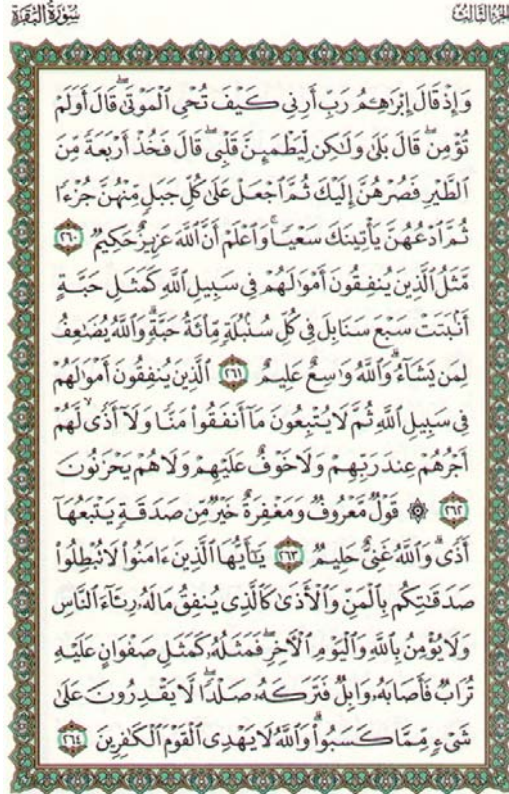 سُورَةُ البَقَرَة
الجزء الثالث
وَإِذْ قَالَ إِبْرَٰهِـۧمُ رَبِّ أَرِنِى كَيْفَ تُحْىِ ٱلْمَوْتَىٰ ۖ قَالَ أَوَلَمْ
تُؤْمِن ۖ قَالَ بَلَىٰ وَلَٰكِن لِّيَطْمَئِنَّ قَلْبِى ۖ قَالَ فَخُذْ أَرْبَعَةً مِّنَ
ٱلطَّيْرِ فَصُرْهُنَّ إِلَيْكَ ثُمَّ ٱجْعَلْ عَلَىٰ كُلِّ جَبَلٍ مِّنْهُنَّ جُزْءًا
ثُمَّ ٱدْعُهُنَّ يَأْتِينَكَ سَعْيًا ۚ وَٱعْلَمْ أَنَّ ٱللَّهَ عَزِيزٌ حَكِيمٌ ٢٦٠
مَّثَلُ ٱلَّذِينَ يُنفِقُونَ أَمْوَٰلَهُمْ فِى سَبِيلِ ٱللَّهِ كَمَثَلِ حَبَّةٍ
أَنۢبَتَتْ سَبْعَ سَنَابِلَ فِى كُلِّ سُنۢبُلَةٍ مِّا۟ئَةُ حَبَّةٍ ۗ وَٱللَّهُ يُضَٰعِفُ
لِمَن يَشَآءُ ۗ وَٱللَّهُ وَٰسِعٌ عَلِيمٌ ٢٦١ ٱلَّذِينَ يُنفِقُونَ أَمْوَٰلَهُمْ
فِى سَبِيلِ ٱللَّهِ ثُمَّ لَا يُتْبِعُونَ مَآ أَنفَقُوا۟ مَنًّا وَلَآ أَذًى ۙ لَّهُمْ
أَجْرُهُمْ عِندَ رَبِّهِمْ وَلَا خَوْفٌ عَلَيْهِمْ وَلَا هُمْ يَحْزَنُونَ
٢٦٢ ۞ قَوْلٌ مَّعْرُوفٌ وَمَغْفِرَةٌ خَيْرٌ مِّن صَدَقَةٍ يَتْبَعُهَآ
أَذًى ۗ وَٱللَّهُ غَنِىٌّ حَلِيمٌ ٢٦٣ يَٰٓأَيُّهَا ٱلَّذِينَ ءَامَنُوا۟ لَا تُبْطِلُوا۟
صَدَقَٰتِكُم بِٱلْمَنِّ وَٱلْأَذَىٰ كَٱلَّذِى يُنفِقُ مَالَهُۥ رِئَآءَ ٱلنَّاسِ
وَلَا يُؤْمِنُ بِٱللَّهِ وَٱلْيَوْمِ ٱلْءَاخِرِ ۖ فَمَثَلُهُۥ كَمَثَلِ صَفْوَانٍ عَلَيْهِ
تُرَابٌ فَأَصَابَهُۥ وَابِلٌ فَتَرَكَهُۥ صَلْدًا ۖ لَّا يَقْدِرُونَ عَلَىٰ
شَىْءٍ مِّمَّا كَسَبُوا۟ ۗ وَٱللَّهُ لَا يَهْدِى ٱلْقَوْمَ ٱلْكَٰفِرِينَ ٢٦٤